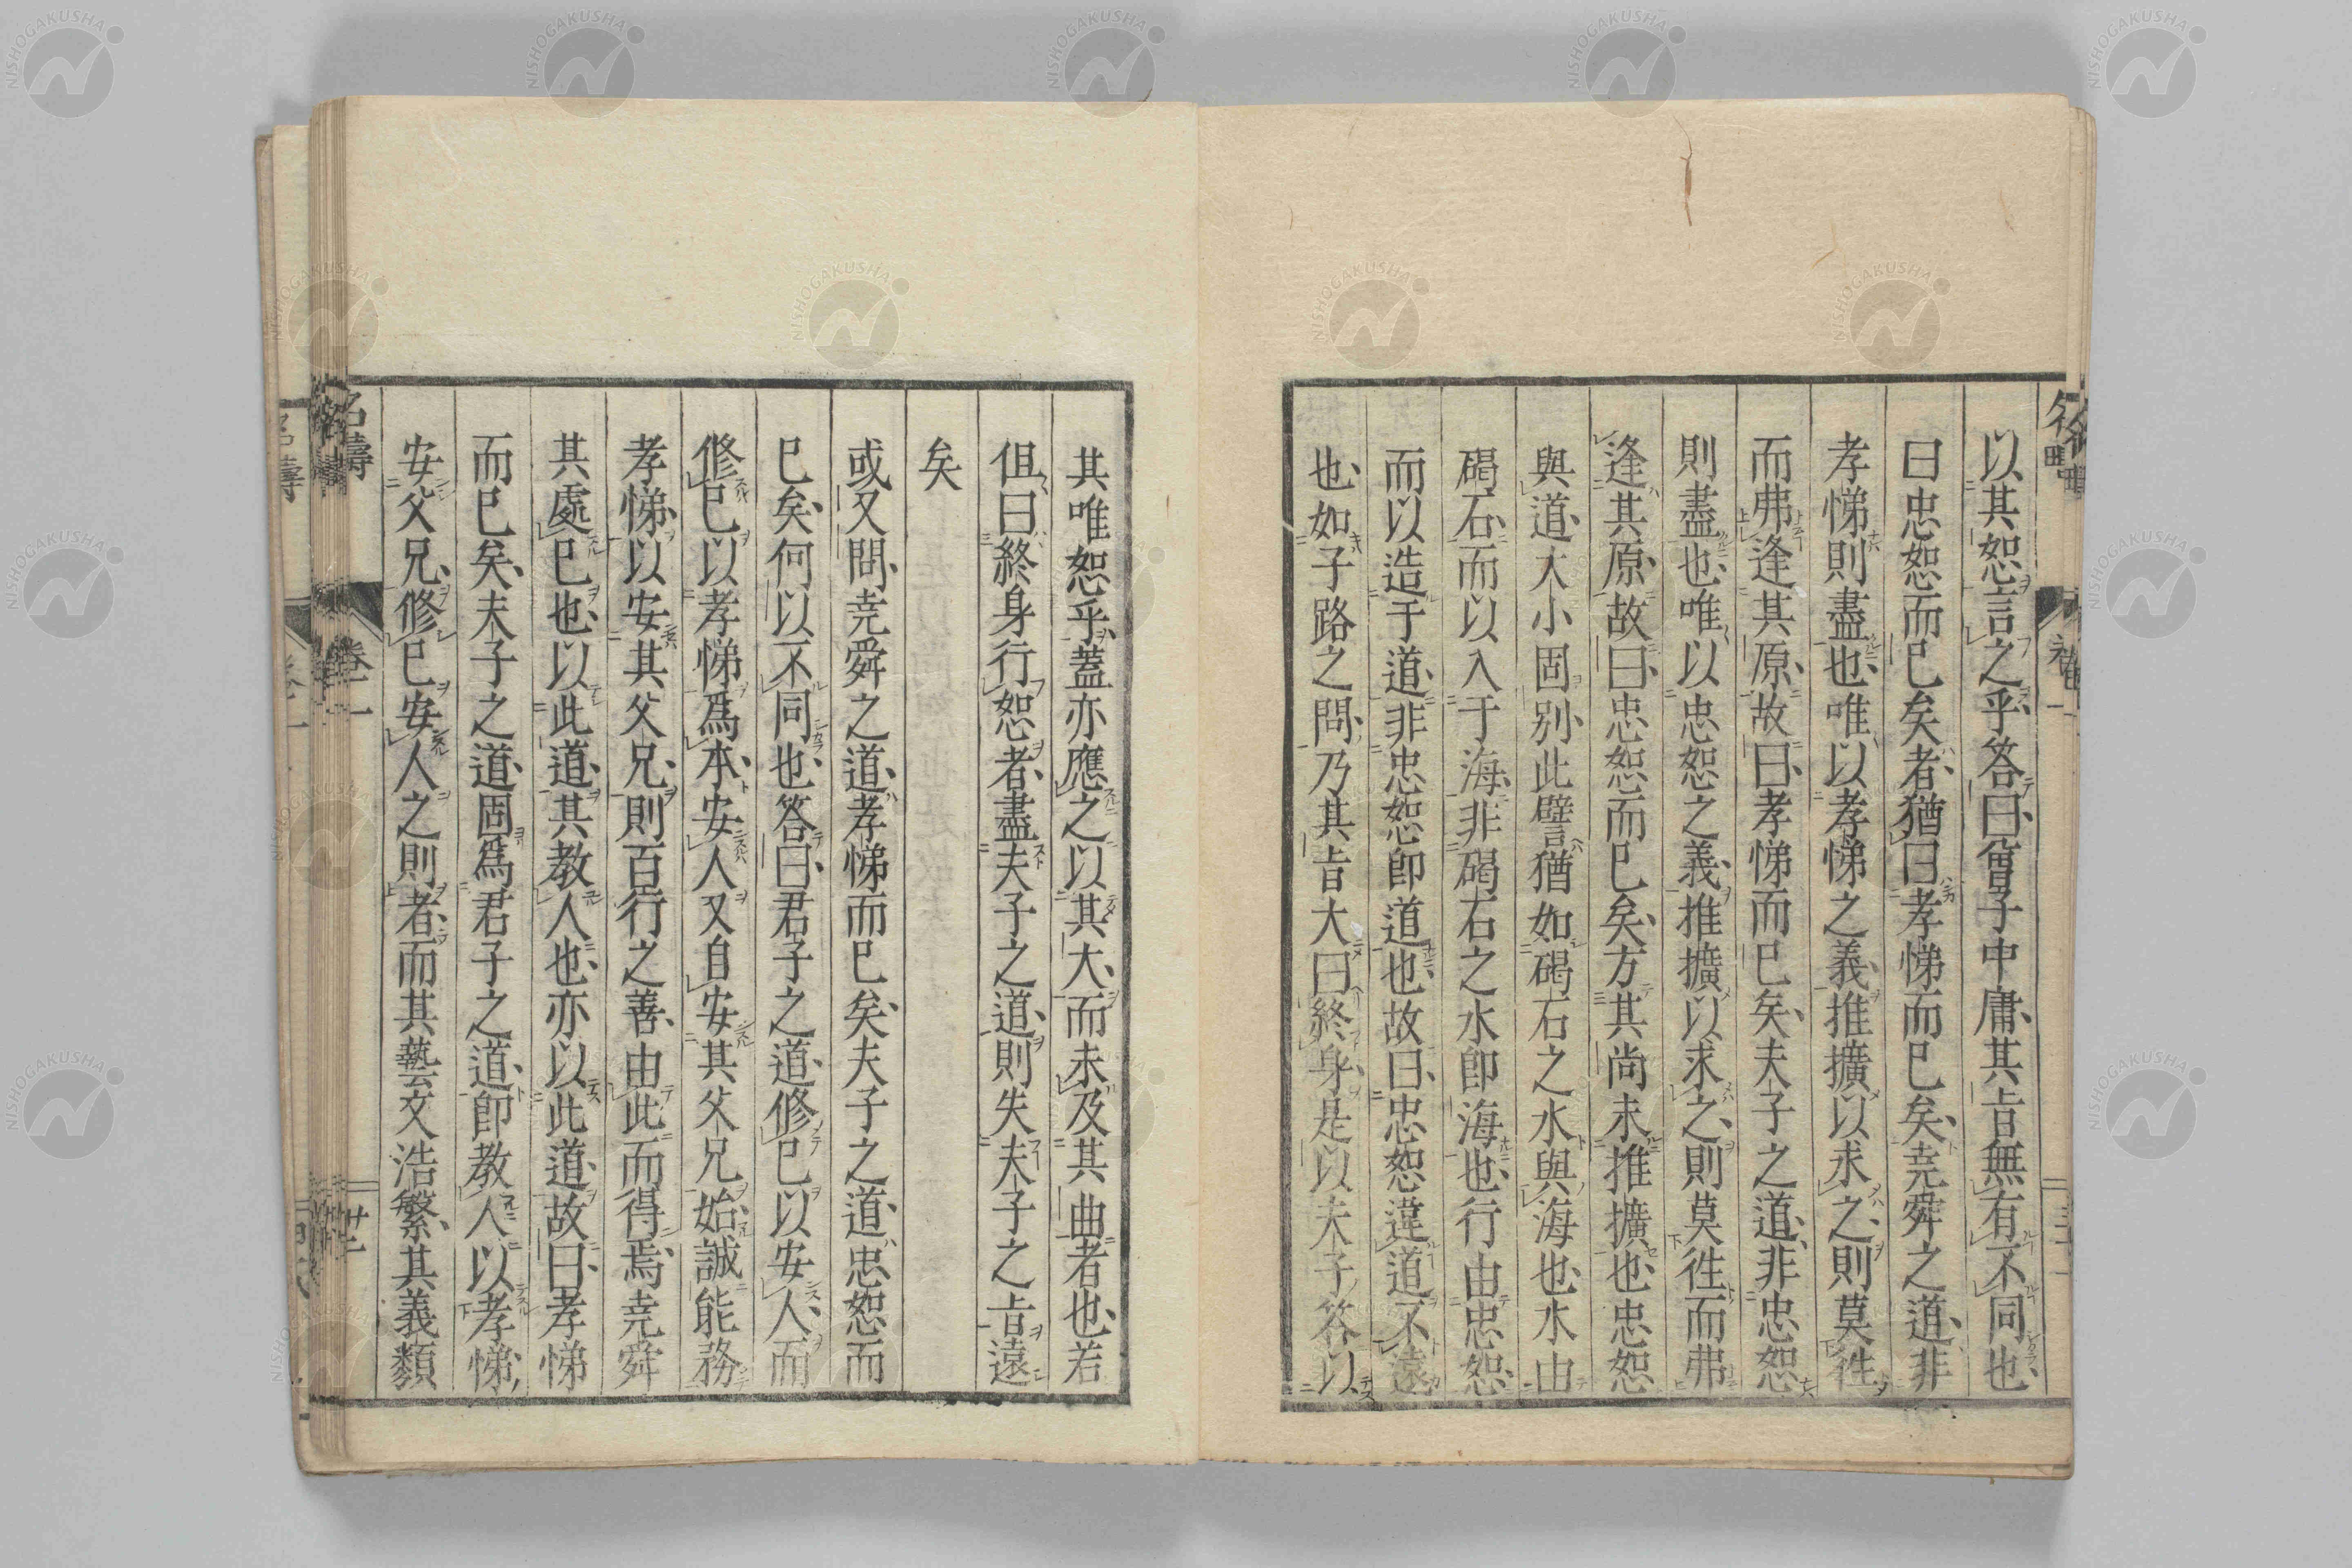 以其恕言之乎、答曰、曾子中庸、其旨無有不同也、
曰忠恕而已矣者、猶曰孝悌而已矣、堯舜之道、非
孝悌則盡也、唯以孝悌之義、推擴以求之、則莫往
而弗逢其原、故曰、孝悌而已矣、夫子之道、非忠恕
則盡也、唯以忠恕之義、推擴以求之、則莫往而弗
逢其原、故曰、忠恕而已矣、方其尚未推擴也、忠恕
與道、大小固別、此譬猶如碣石之水與海也、水由
碣石、而以入于海、非碣石之水卽海也、行由忠恕、
而以造于道、非忠恕卽道也、故曰、忠恕違道不遠
也、如子路之問、乃其旨大、曰終身、是以夫子答以、
其唯恕乎、蓋亦應之以其大、而未及其曲者也、若
但曰終身行恕者、盡夫子之道、則失夫子之旨遠
矣
或又問、堯舜之道、孝悌而已矣、夫子之道、忠恕而
已矣、何以不同也、答曰、君子之道、修已以安人、而
修已以孝悌爲本、安人又自安其父兄始、誠能務
孝悌、以安其父兄、則百行之善、由此而得焉、堯舜
其處已也、以此道、其教人也、亦以此道、故曰、孝悌
而已矣、夫子之道、固爲君子之道、卽教人以孝悌、
安父兄、修已安人之則者、而其藝文浩繁、其義類
名疇
卷一